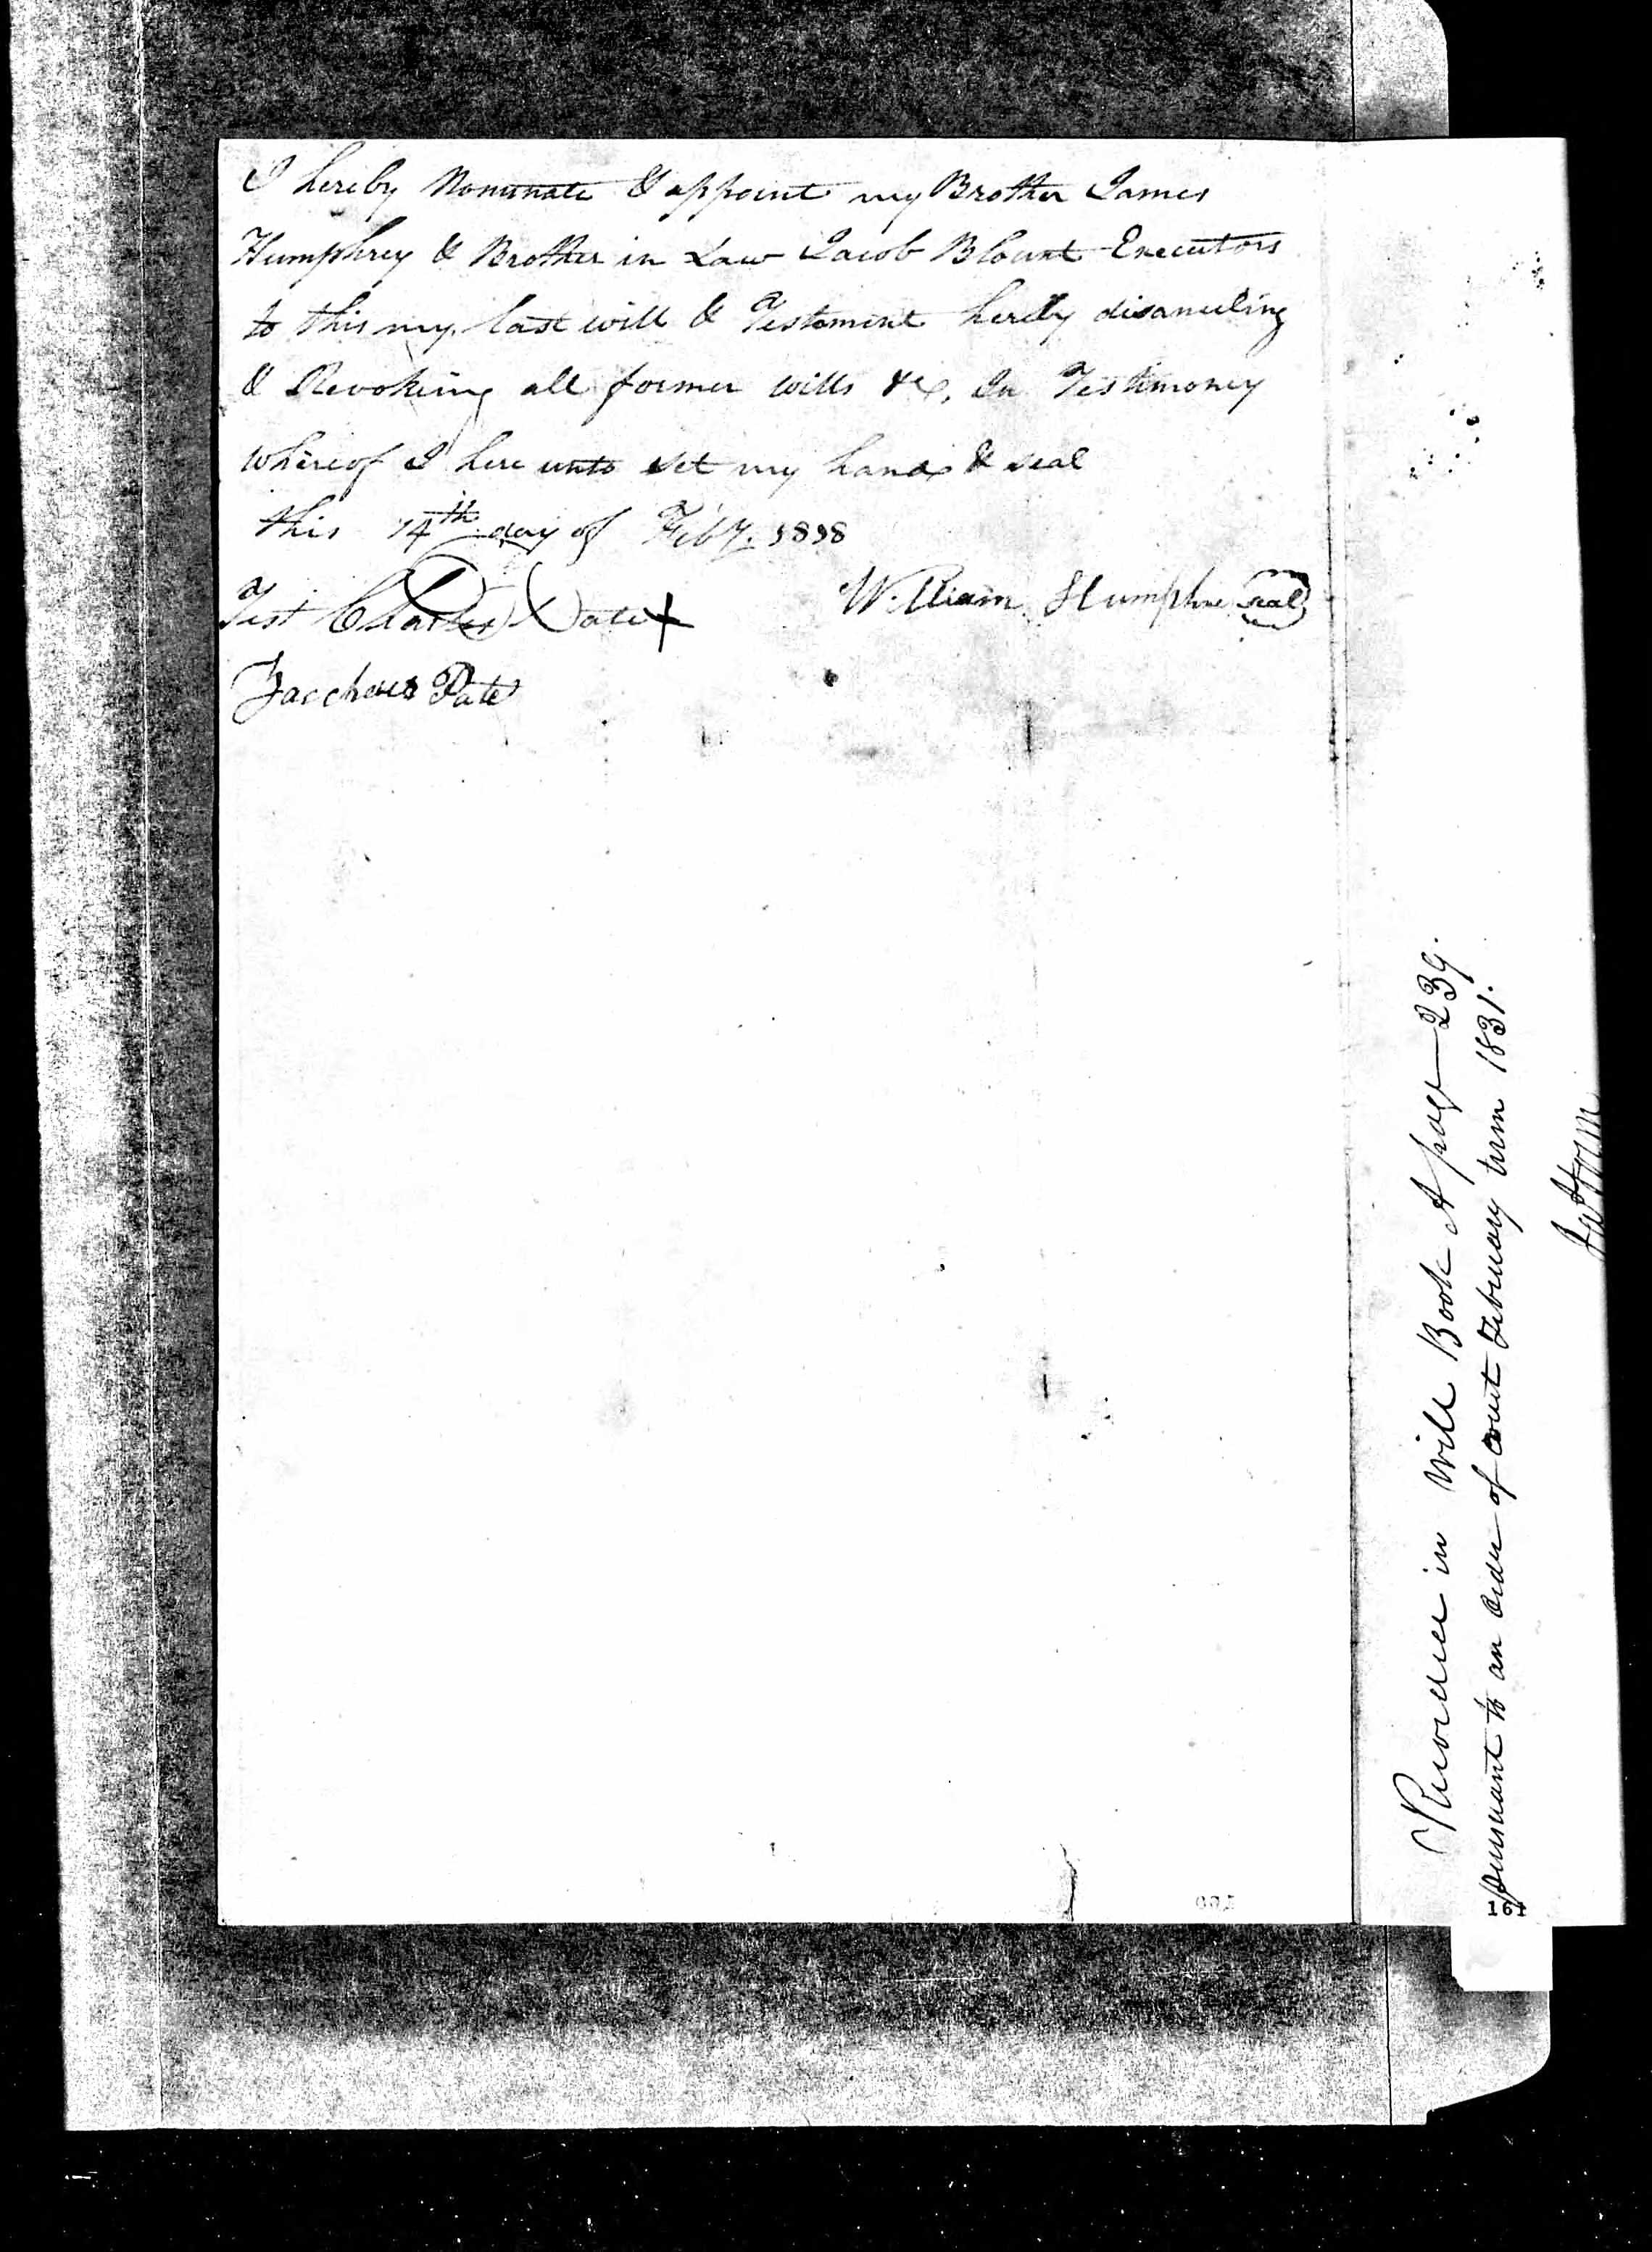 I hereby Nominate & appoint my Brother James
Humphrey & Brother in Law Jacob Blount Executors
to this my last will & Testament hereby disanuling
& Revoking all former wills &c, In Testimony
whereof I here unto set my hand & seal
this 14th day of Feby. 1818
Test Charles Pate X
William Humphre Seal
Zaccheus Pate
Recorded in Will Book A page 239.
pursuant to an order of court February term 1831.
161